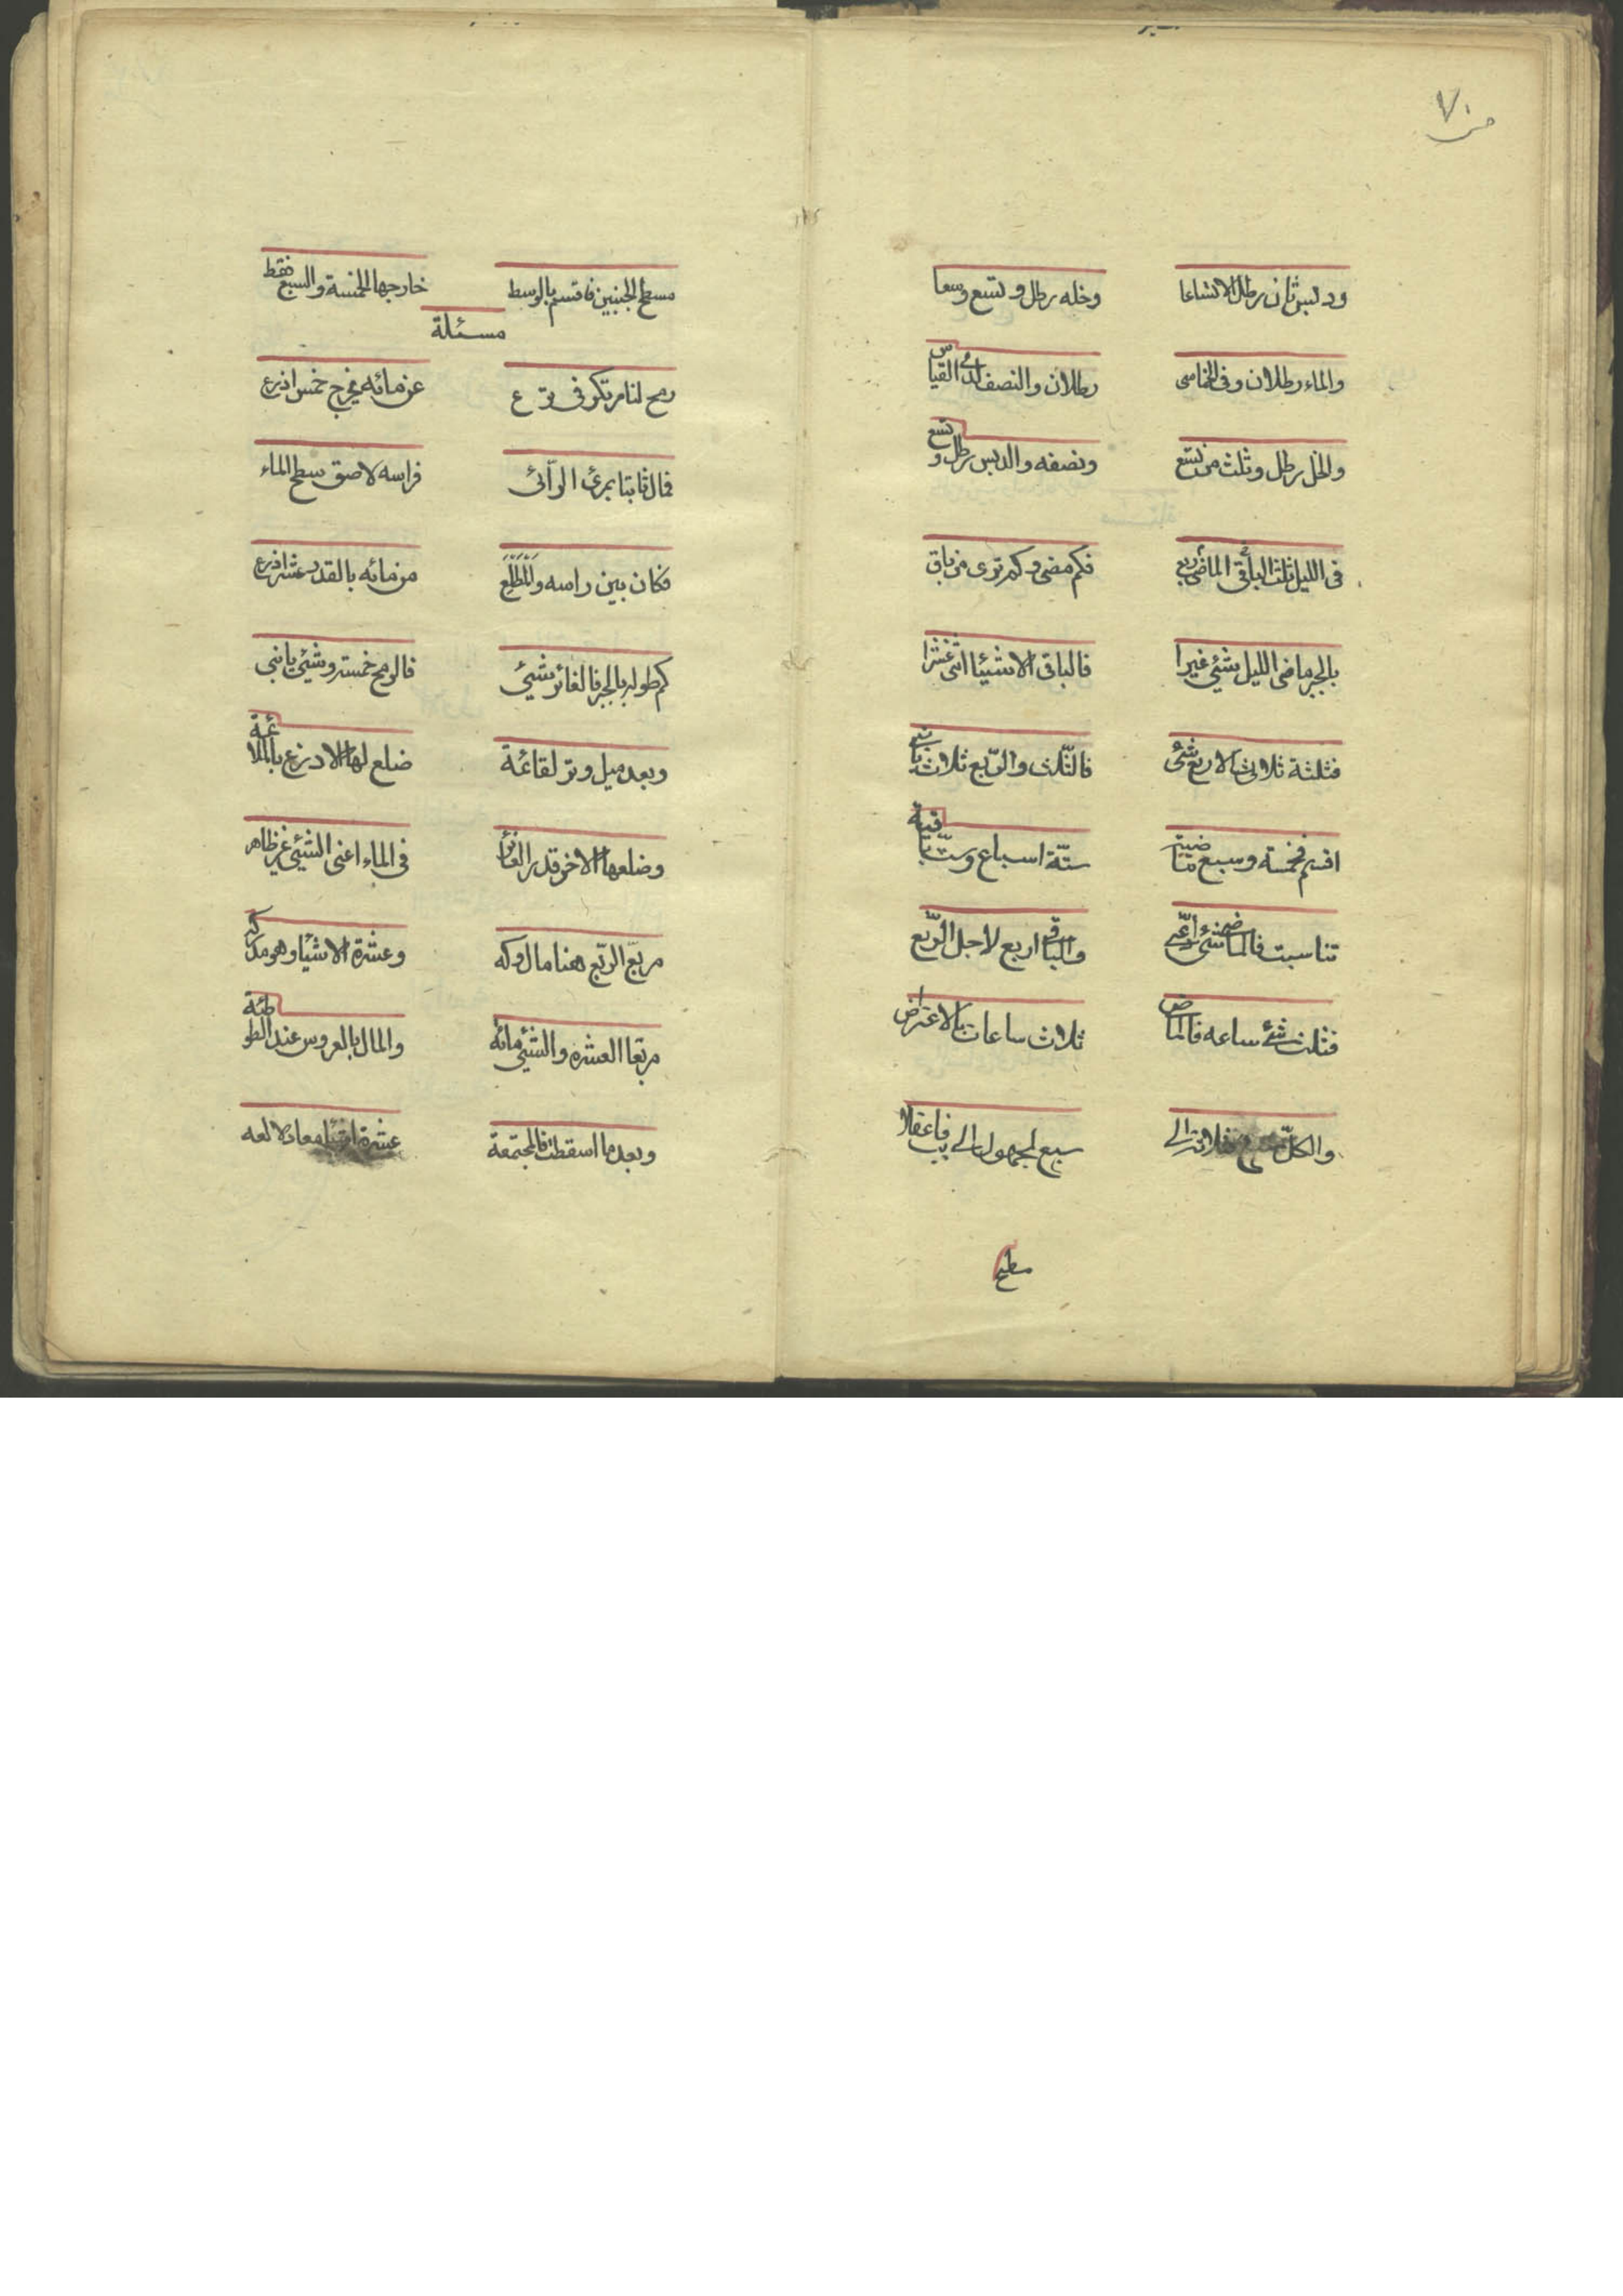 ص ٧٠
ودبس ثمان رطل الاتساعا وخله رطل وتسع وسعا
والماء رطلان وفى الخماسى رطلان والنصف لدى القياس
والخل رطل وثلث من تسع ونصفه والدبس رطل وتسع
فى الليل ثلث الباقى الماضى ربع فكم مضى وكم ترى من باق
بالجبر ماضى الليل شئي غيرا فالباقى الا شيئا اثنى عشرا
فثلثة ثلاث الا ربع شئ فالثلث والربع ثلاث
اقسم فخمسة وسبع ماضية ستة اسباع وست باقية
تناسبت فالماضى شئ والباقى اربع لاجل الربع
فثلث شئ ساعه فالماض ثلاث ساعات بالاعتراض
والكل ثلاثة الى سبع لمجهول الى
مسطح
مسطح الجنبين فاقسم بالوسط خارجها الخمسة والسبع فقط
مسئلة
رمح لنا مرتكز فى عن مائه يخرج خمس اذرع
فمال ثابتا بمرئ الرّائى فراسه لاصق سطح الماء
فكان بين راسه والمطلع من مائه بالقدر عشر اذرع
كم طوله بالجبر فالغائر شئي فالرمح خمسة وشئي يا بنى
وبعد ميل وتر لقائمة ضلع لها الاذرع بالملائمة
وضلعها الاخر قدر الغائر فى الماء اعنى الشئي غير ظاهر
مربّع الرّبع هنا مال وكه وعشرة الاشيا وهو مدركه
مربّعا العشره والشئي مائه والمال بالعروس عند الطوطئة
وبعد ما اسقطت فالمجتمعة عشرة اشيا معادلا لعه